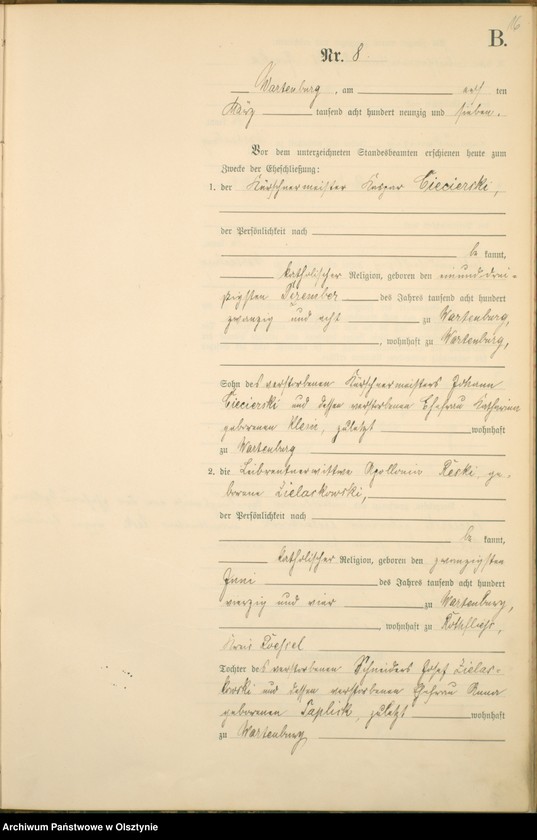 16
B.
Nr. 8.
Wartenburg, am ersten
März tausend acht hundert neunzig und sieben.
Vor dem unterzeichneten Standesbeamten erschienen heute zum
Zwecke der Eheschließung:
1. der Kürschnermeister Kaspar Ciecierski,
der Persönlichkeit nach
be kannt,
katholischer Religion, geboren den einunddrei-
ßigsten Dezember des Jahres tausend acht hundert
zwanzig und acht zu Wartenburg,
, wohnhaft zu Wartenburg,
Sohn des verstorbenen Kürschnermeisters Johann
Ciecierski und dessen verstorbenen Ehefrau Katharina
geborenen Klein, zuletzt wohnhaft
zu Wartenburg
2. die Leibrentnerwittwe Apollonia Reski, ge-
borene Zielaskowski,
der Persönlichkeit nach
be kannt,
katholischer Religion, geboren den zwanzigsten
Juni des Jahres tausend acht hundert
vierzig und vier zu Wartenburg,
, wohnhaft zu Rothfließ,
Kreis Roessel
Tochter des verstorbenen Schneiders Josef Zielas-
kowski und dessen verstorbenen Ehefrau Anna
geborenen Paplick, zuletzt wohnhaft
zu Wartenburg
Archiwum Państwowe w Olsztynie